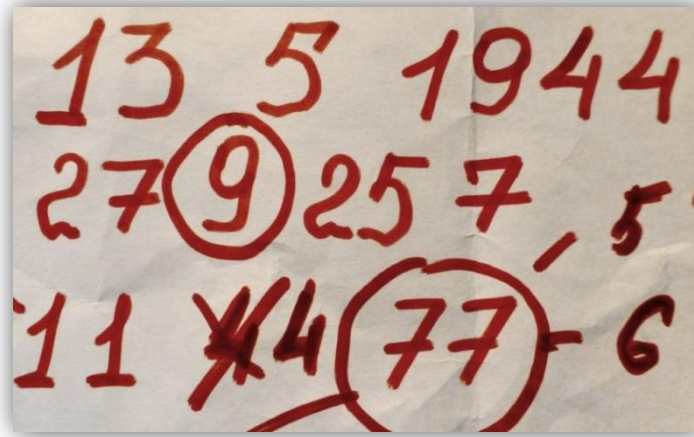 13 5 1944
27 9 25 7
5
11 4 77 - 6